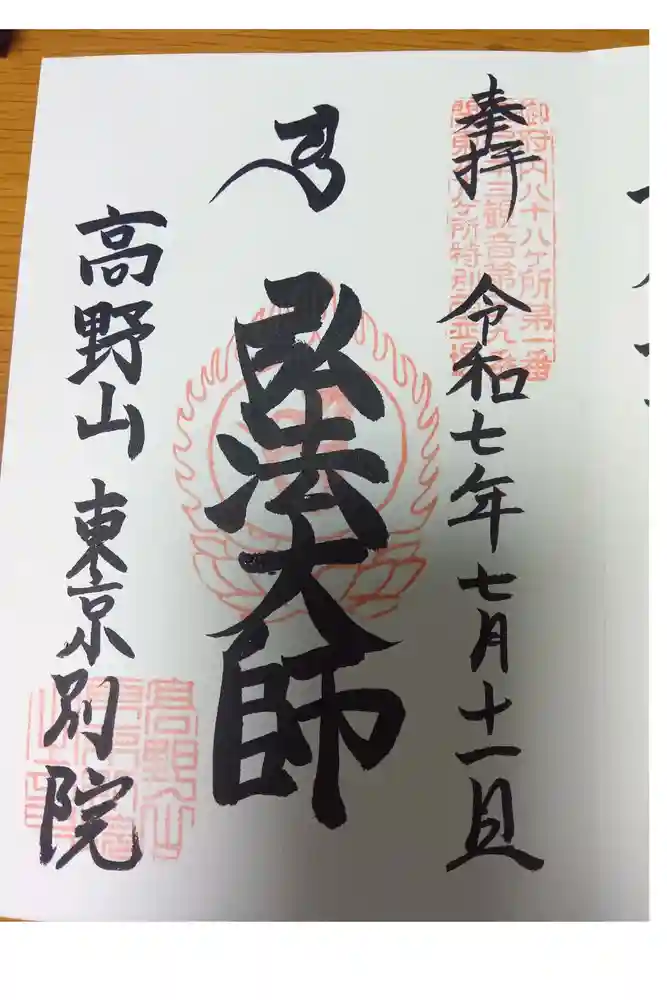 奉拝 令和七年七月十一日
御府内八十八ケ所第一番
弘法大師
高野山 東京別院